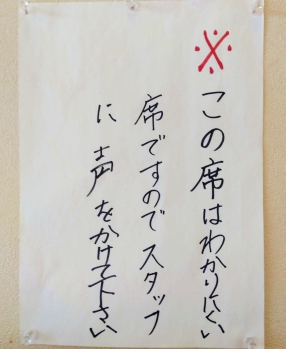 ※この席はわかりにくい
席ですのでスタッフ
に声をかけて下さい